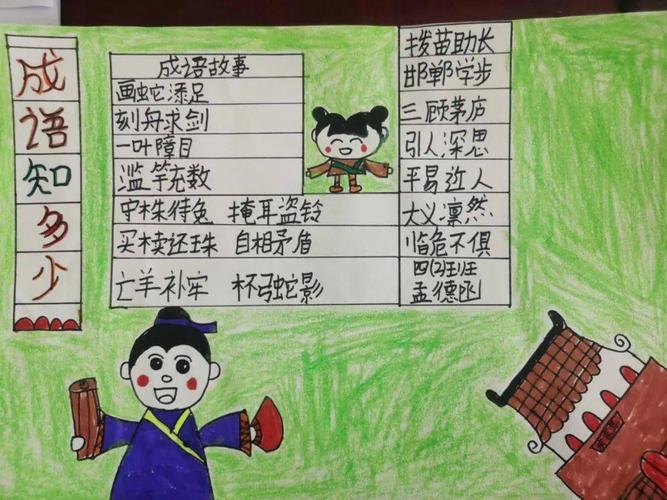 成语知多少
成语故事
画蛇添足
刻舟求剑
一叶障目
滥竽充数
守株待兔 掩耳盗铃
买椟还珠 自相矛盾
亡羊补牢 杯弓蛇影
拨苗助长
邯郸学步
三顾茅庐
引人深思
平易近人
大义凛然
临危不惧
四(2)班
孟德函